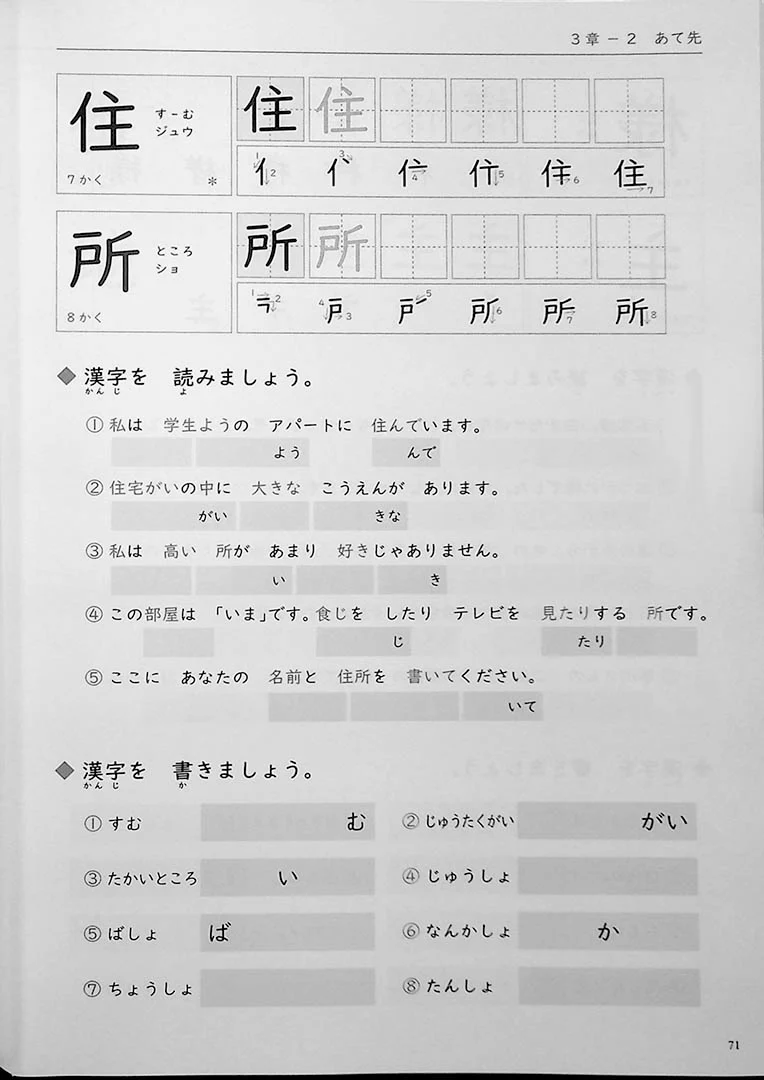 3章－2　あて先
住
すーむ
ジュウ
7かく
*
住 住
1 2 3 4 5 6 7
所
ところ
ショ
8かく
所 所
1 2 4 3 5 6 7 8
◆漢字を　読みましょう。
かんじ　よ
①私は　学生ようの　アパートに　住んでいます。
よう　んで
②住宅がいの中に　大きな　こうえんが　あります。
がい　きな
③私は　高い　所が　あまり　好きじゃありません。
い　き
④この部屋は　「いま」です。食じを　したり　テレビを　見たりする　所です。
じ　たり
⑤ここに　あなたの　名前と　住所を　書いてください。
いて
◆漢字を　書きましょう。
かんじ　か
①すむ　む　②じゅうたくがい　がい
③たかいところ　い　④じゅうしょ
⑤ばしょ　ば　⑥なんかしょ　か
⑦ちょうしょ　⑧たんしょ
71